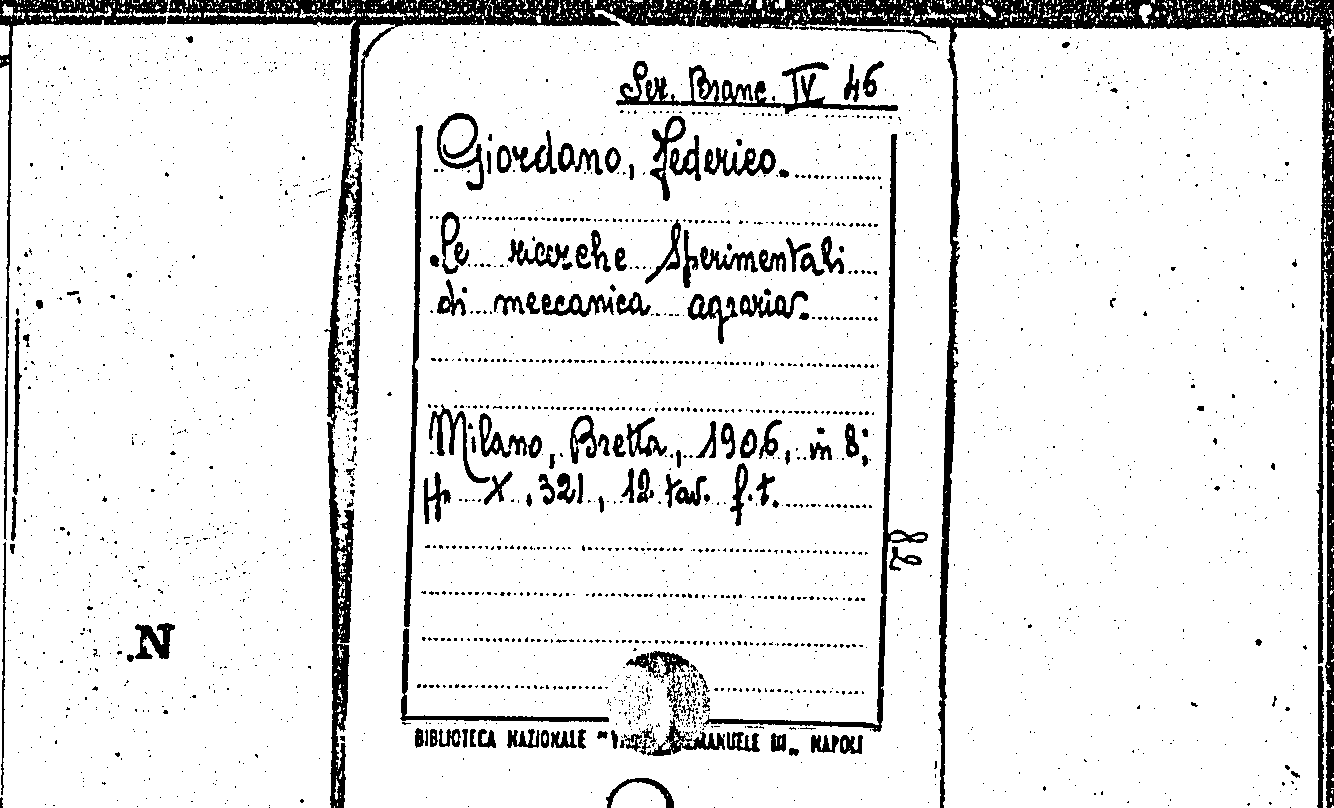 Ser. Branc. IV 46
Giordano, Federico.
Le ricerche sperimentali
di meccanica agraria.
Milano, Bretta, 1906, in 8;
pp. X, 321, 12 tav. f.t.
78
.N
BIBLIOTECA NAZIONALE " EMANUELE III„ NAPOLI